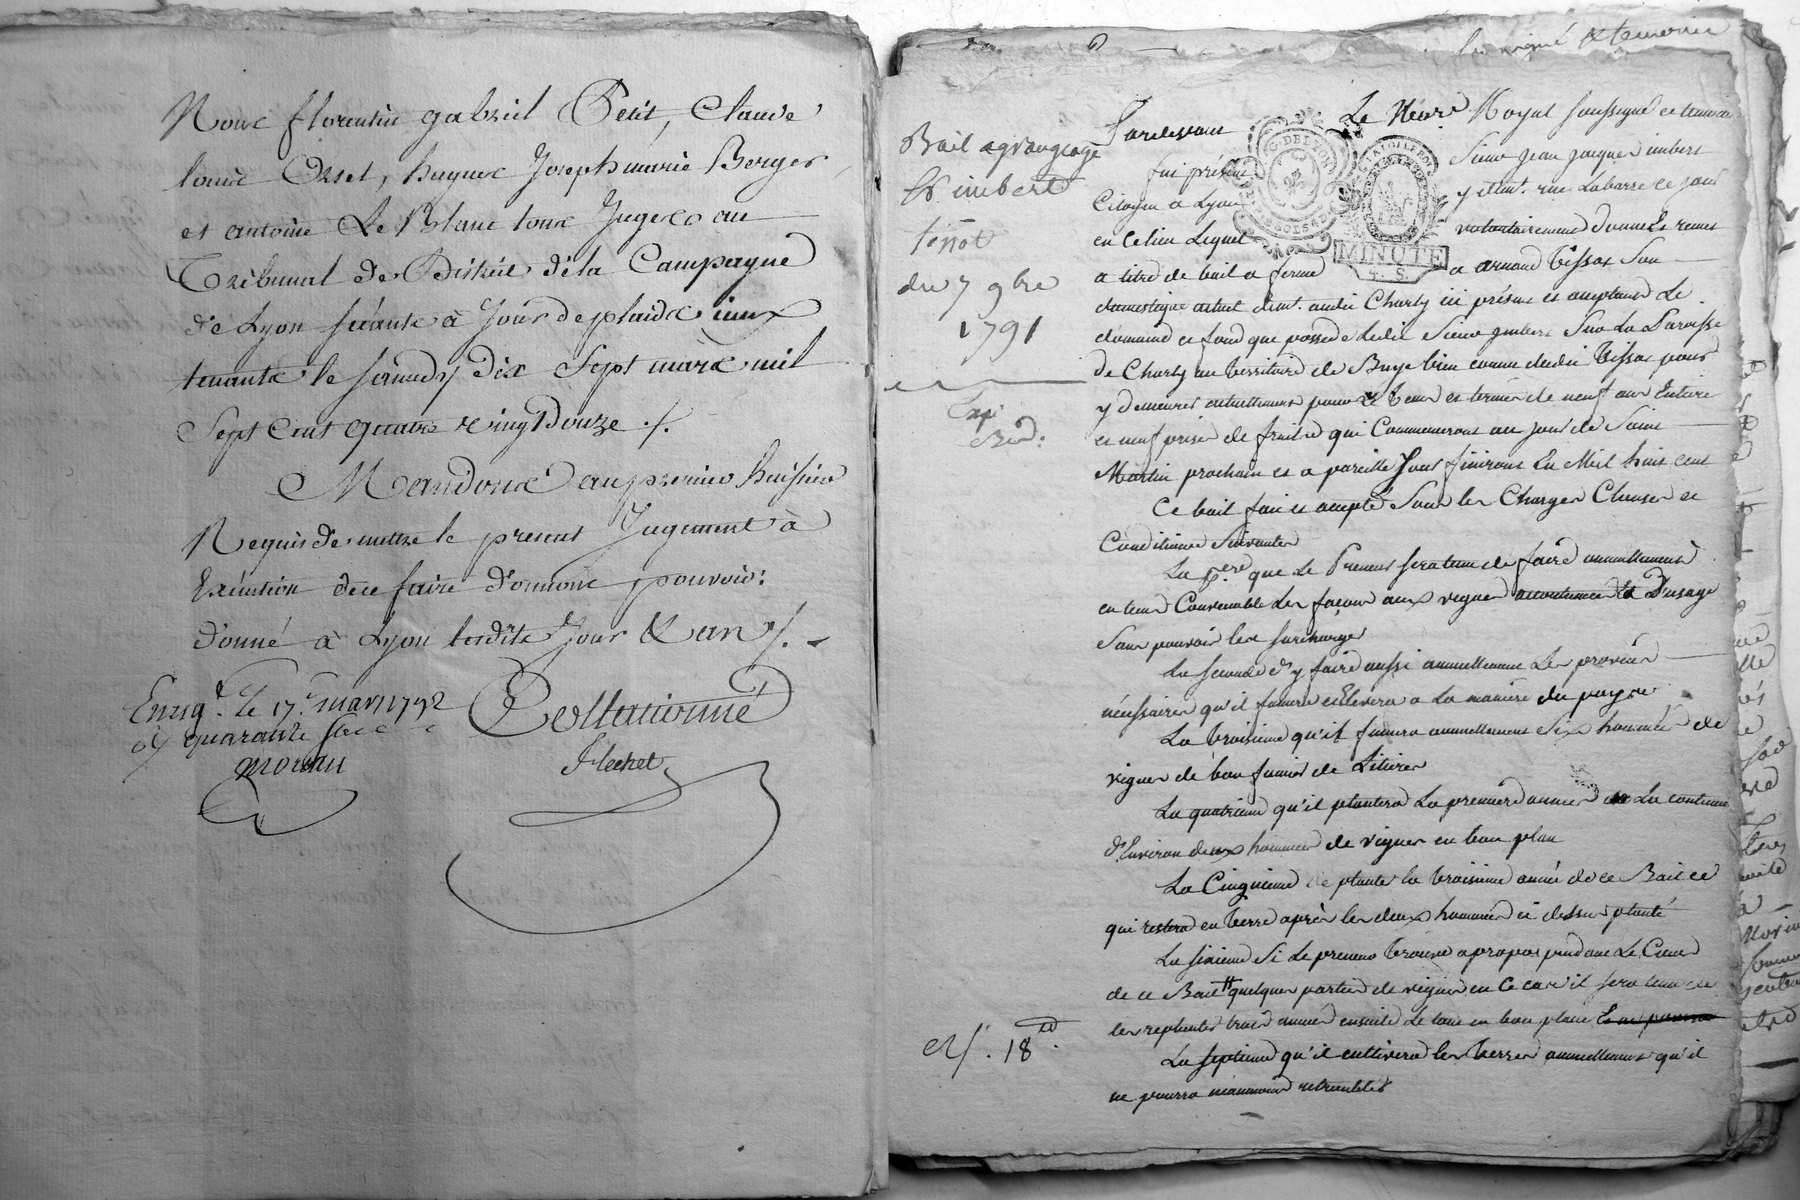 Nous florentin gabriel Petit, Claude
louis Orset, hugues Joseph marie Berger,
et antoine Le Blanc tous Juges au
Tribunal de District de la Campagne
de Lyon séante à Jour de plaids iceux
tenants le samedy dix Sept mars mil
Sept Cent quatre vingt Douze ./.
Mandons au premier huissier
Requis de mettre le present Jugement à
Exécution de ce faire donnons pouvoir:
donné à Lyon lesdits Jour & an ./.
Enreg.t le 17.e mars 1792
quarante
Collationné
Flechet
moreau
signé & temoin
Bail a grangeage
Sr. imbert
tissot
du 7 9bre
1791
Expé
Pardevant Le No.re Royal soussigné et temoins
fut présent Sieur Jean Jacques imbert
Citoyen a Lyon y demt. rue Labarre ce jour
en ce lieu Lequel volontairement donne et remet
a titre de bail a ferme a arnaud tissot son
domestique actuel demt. audit Charly ici présent et acceptant Le
domaine et fond que possede Ledit Sieur imbert Sur La Paroisse
de Charly au territoire de Buye bien connu dudit tissot pour
y demeurer actuellement pour Le tems et terme de neuf ans Entiers
et neuf prises de fruits qui Commenceront au jour de Saint
Martin prochain et a pareille Jour finiront En Mil huit cent
Ce bail fait et accepté Sous les Charges Clauses et
Conditions Suivantes
La p.ere que Le Preneur sera tenu de faire annuellement
en tems Convenable Les façons aux vignes accoutumées et D'usage
Sans pouvoir les surcharger
La seconde d'y faire aussi annuellement Les provins
nécessaires qu'il fumera et Elevera a La maniere du pays
La troisieme qu'il fumera annuellement Six hommées de
vignes de bon fumier de Litiere
La quatrieme qu'il plantera La premiere année La contenue
d'Environ deux hommées de vignes en bon plan
La Cinquieme de planter la troisieme année de ce Bail ce
qui restera en terre après les deux hommées ci dessus planté
La sixieme Si Le preneur trouve apropos pendant Le Cours
de ce Bail quelques parties de vignes en Ce cas il sera tenu de
les replanter trois années ensuite Le tout en bon plan
La septieme qu'il cultivera les terres annuellement qu'il
ne pourra néanmoins retroubler
MINUTE
4. S.
18